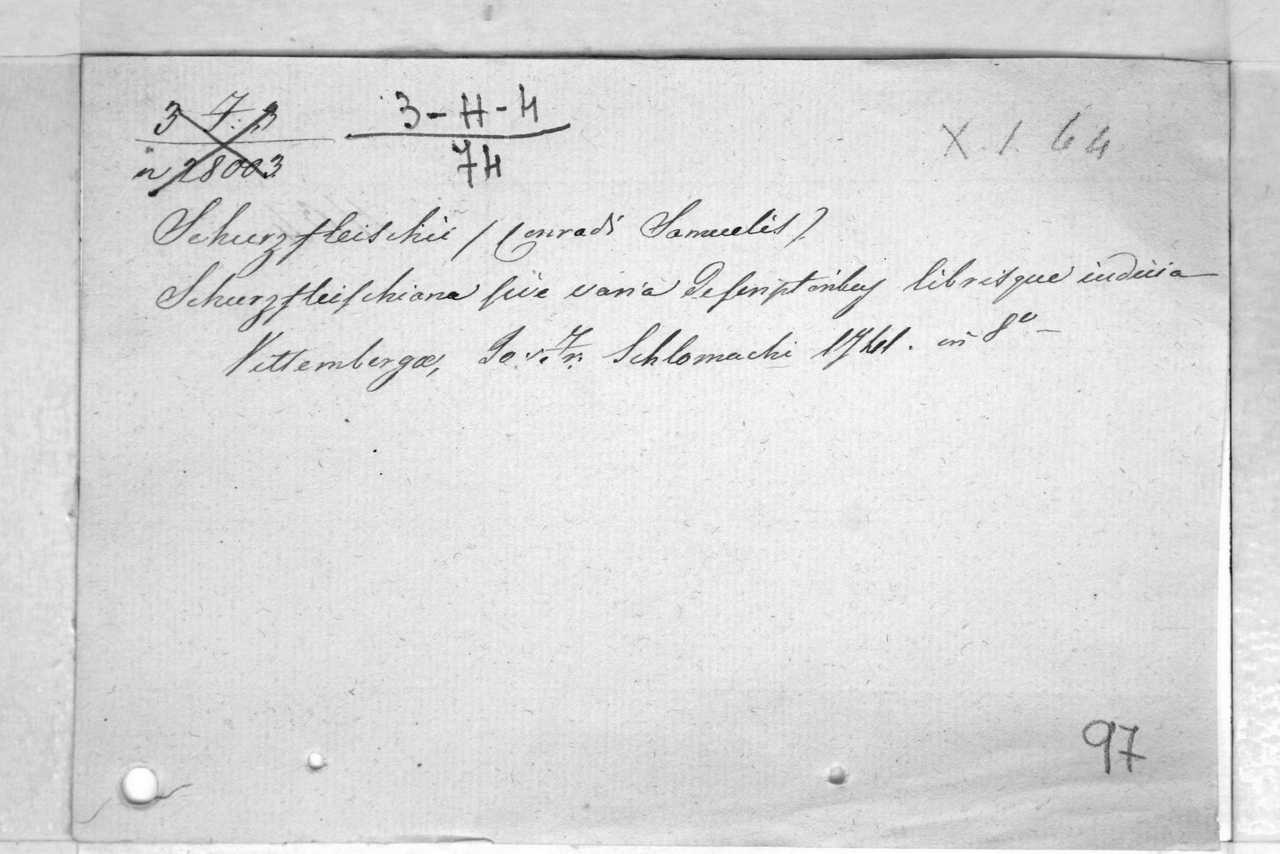 3 7. 3
3-H-4
n 28003
74
X. 1. 64
Schurzfleischii / (Conradi Samuelis)
Schurzfleischiana sive varia De scriptoribus librisque iudicia
Vittembergæ, Io. Fr. Schlomachi 1741. in 8º
97